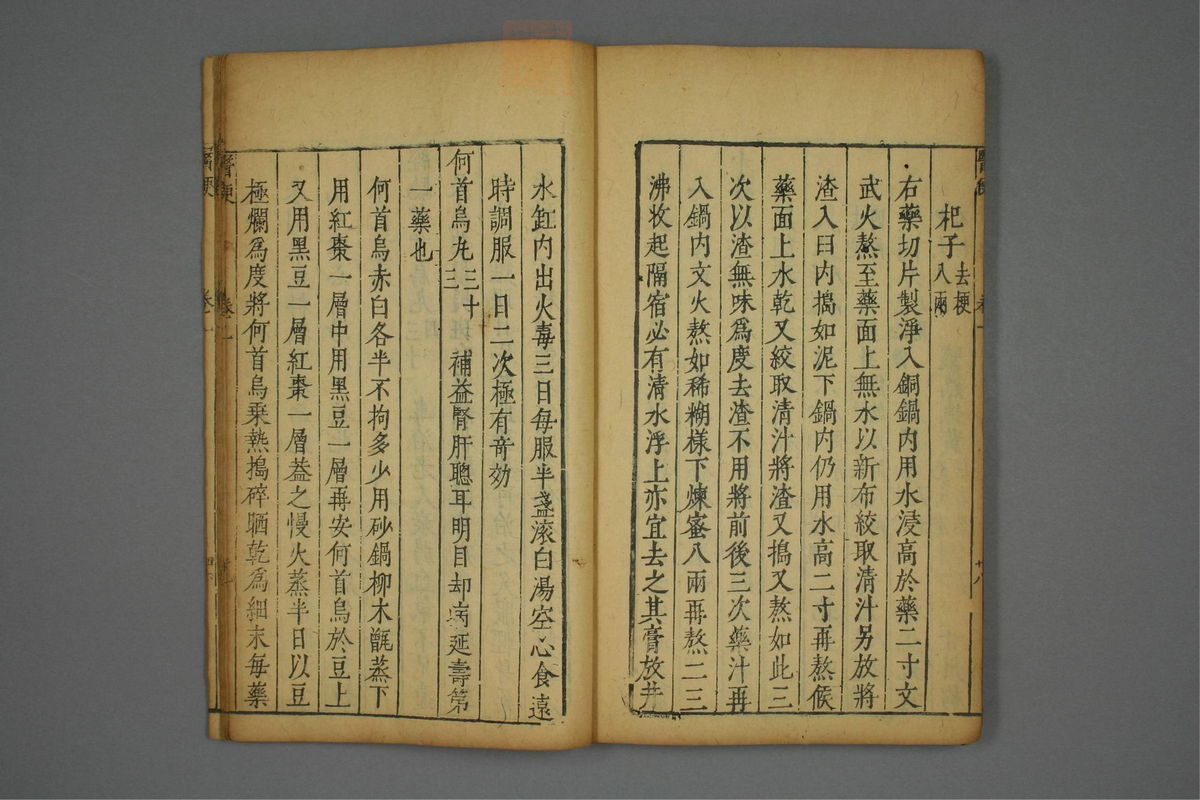 杞子去梗入兩
右藥切片製淨入銅鍋內用水浸高於藥二寸文
武火熬至藥面上無水以新布絞取清汁另放將
渣入臼內搗如泥下鍋內仍用水高二寸再熬候
藥面上水乾又絞取清汁將渣又搗又熬如此三
次以渣無味爲度去渣不用將前後三次藥汁再
入鍋內文火熬如稀糊樣下煉蜜八兩再熬二三
沸收起隔宿必有清水浮上亦宜去之其膏放井
水缸內出火毒三日每服半盞滚白湯空心食遠
時調服一日二次極有竒効
何首烏丸三十三 補益腎肝聰耳明目却病延壽第
一藥也
何首烏赤白各半不拘多少用砂鍋柳木甑蒸下
用紅棗一層中用黑豆一層再安何首烏於豆上
又用黑豆一層紅棗一層葢之慢火蒸半日以豆
極爛爲度將何首烏乗熱搗碎晒乾爲細末每藥
醫便 卷一